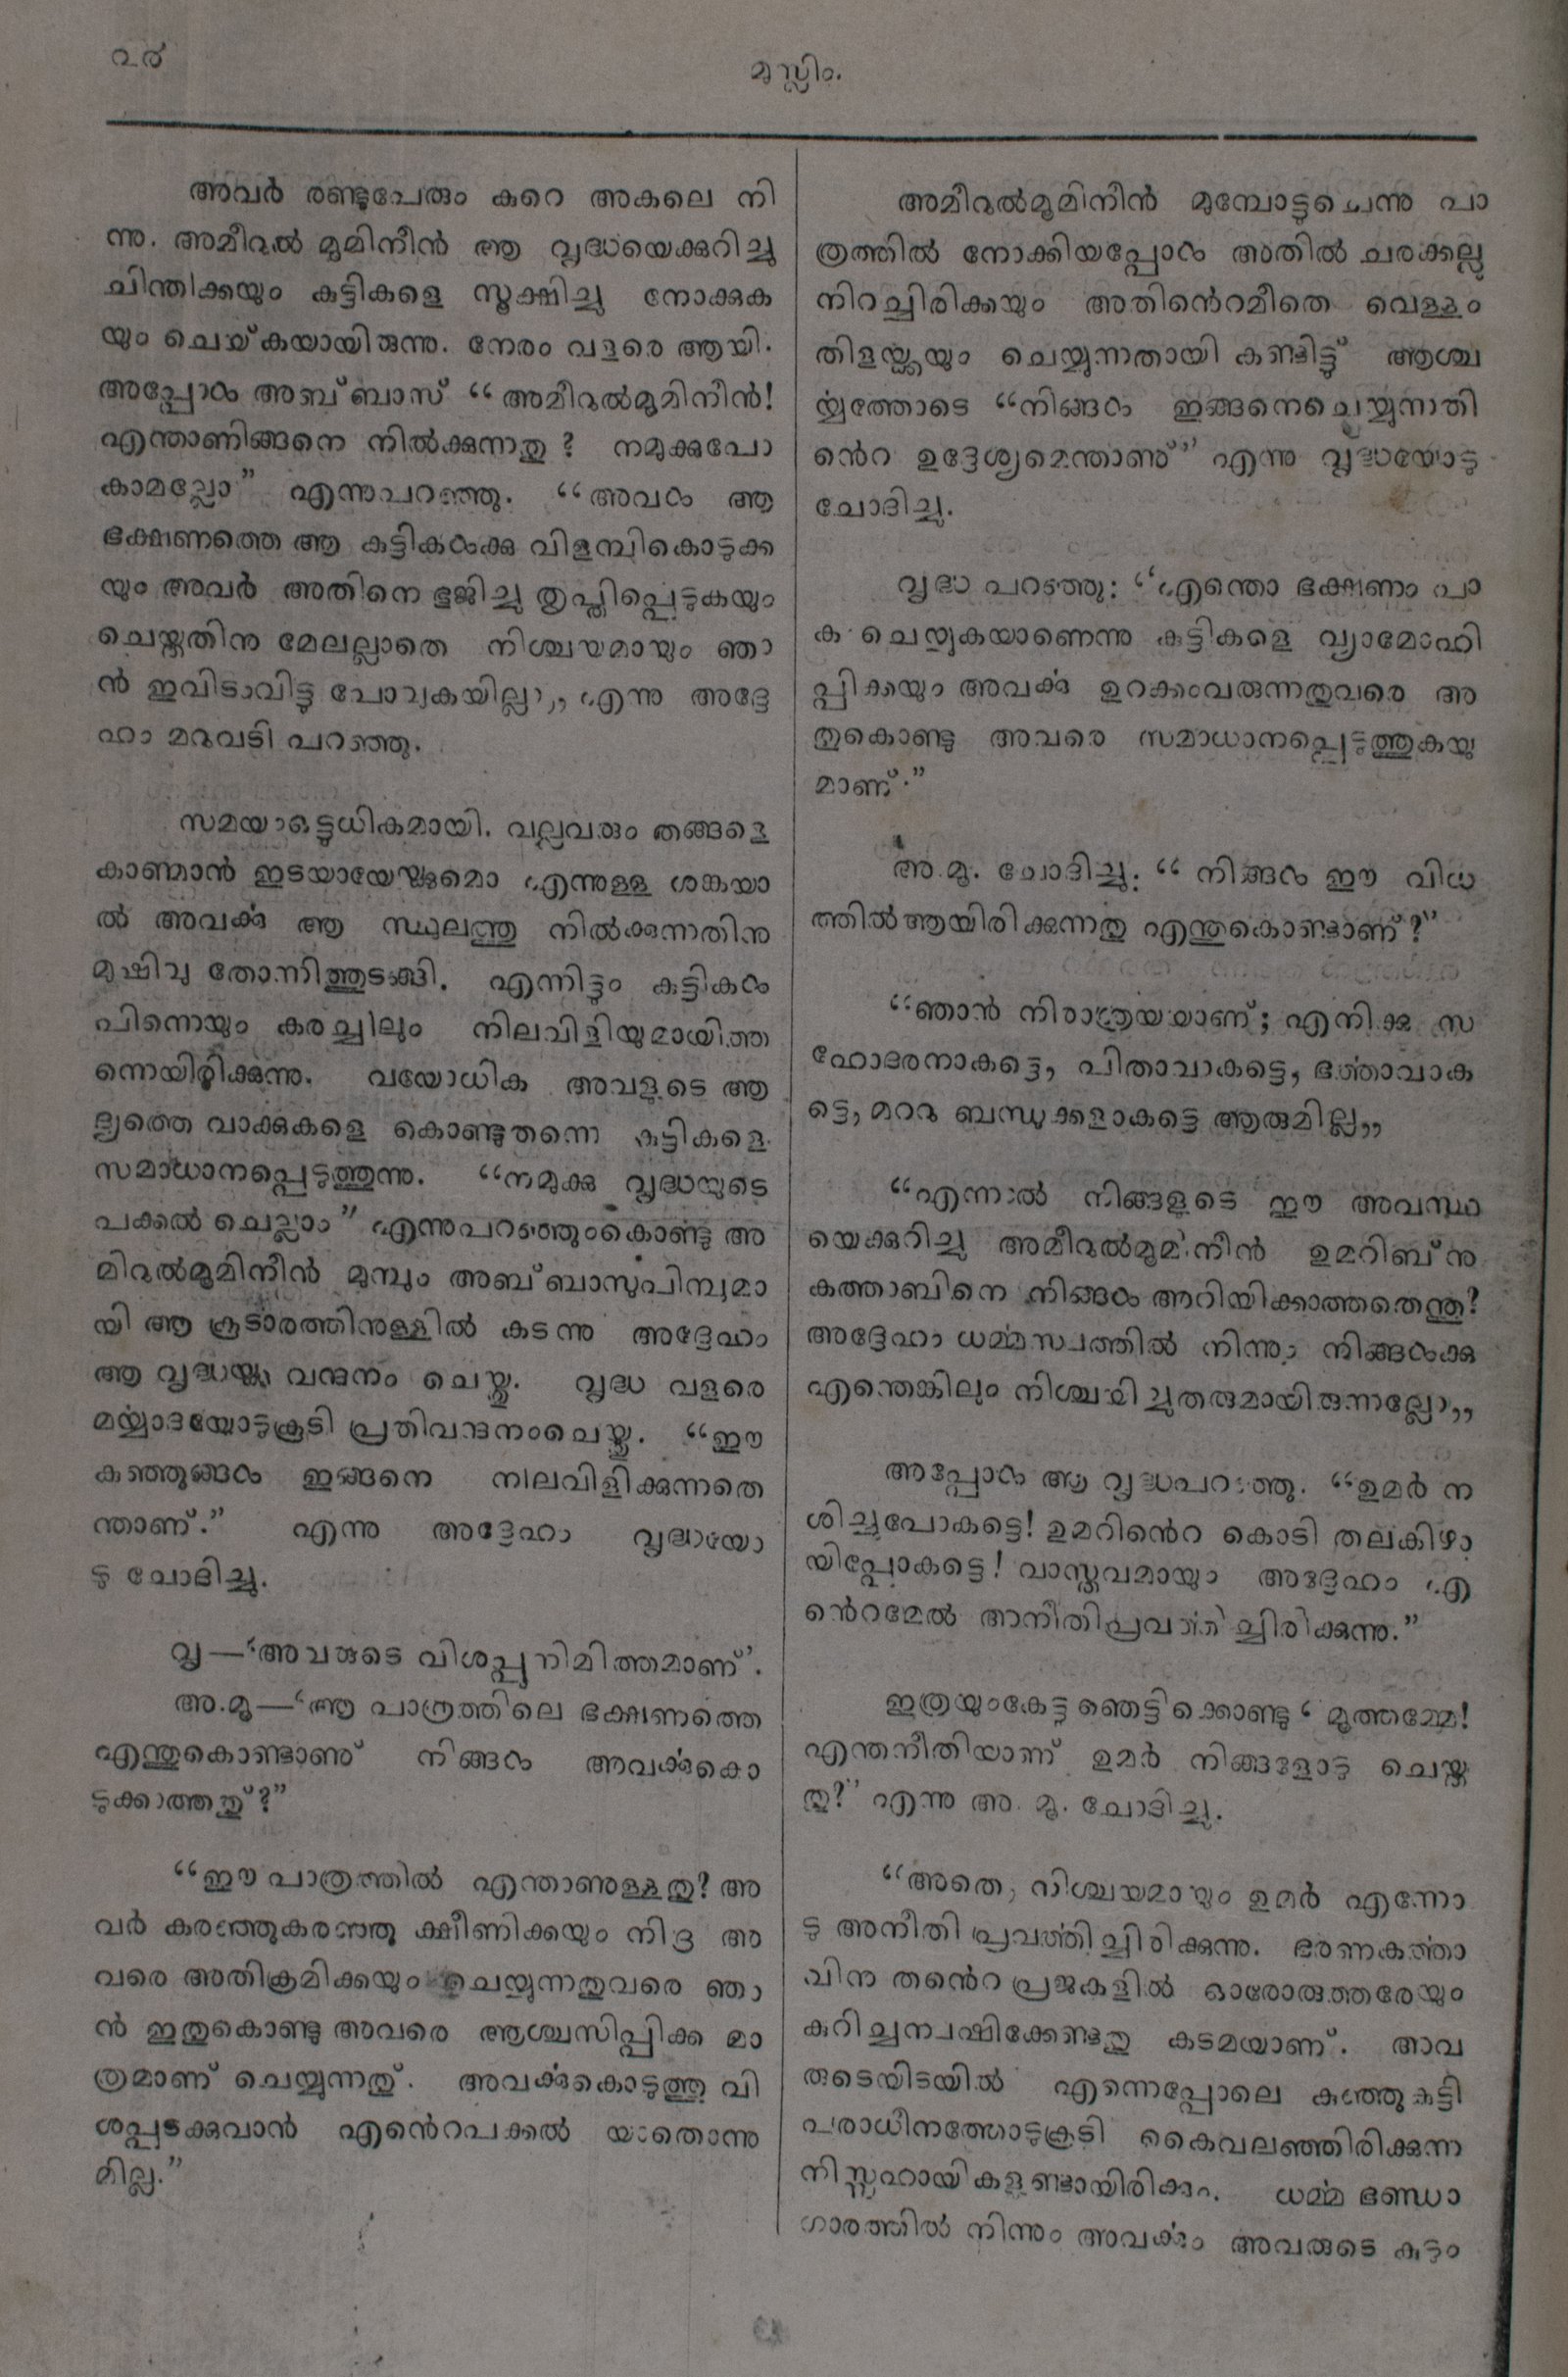 ൨൪
മുസ്ലിം.
അവർ രണ്ടുപേരും കുറെ അകലെ നി
ന്നു. അമീറുൽ മുമിനീൻ ആ വൃദ്ധയെക്കുറിച്ചു
ചിന്തിക്കയും കുട്ടികളെ സൂക്ഷിച്ചു നോക്കുക
യും ചെയ്കയായിരുന്നു. നേരം വളരെ ആയി.
അപ്പോൾ അബ്ബാസ് “അമീറുൽമുമിനീൻ!
എന്താണിങ്ങനെ നിൽക്കുന്നതു? നമുക്കുപോ
കാമല്ലോ” എന്നുപറഞ്ഞു. “അവൾ ആ
ഭക്ഷണത്തെ ആ കുട്ടികൾക്കു വിളമ്പികൊടുക്ക
യും അവർ അതിനെ ഭുജിച്ചു തൃപ്തിപ്പെടുകയും
ചെയ്തതിനു മേലല്ലാതെ നിശ്ചയമായും ഞാ
ൻ ഇവിടംവിട്ടു പോവുകയില്ല,, എന്നു അദ്ദേ
ഹം മറുവടി പറഞ്ഞു.
സമയംഒട്ടധികമായി. വല്ലവരും തങ്ങളെ
കാണ്മാൻ ഇടയായേയ്ക്കുമൊ എന്നുള്ള ശങ്കയാ
ൽ അവൎക്കു ആ സ്ഥലത്തു നിൽക്കുന്നതിനു
മുഷിവു തോന്നിത്തുടങ്ങി. എന്നിട്ടും കുട്ടികൾ
പിന്നെയും കരച്ചിലും നിലവിളിയുമായിത്ത
ന്നെയിരിക്കുന്നു. വയോധിക അവളുടെ ആ
ദ്യത്തെ വാക്കുകളെ കൊണ്ടുതന്നെ കുട്ടികളെ
സമാധാനപ്പെടുത്തുന്നു. “നമുക്കു വൃദ്ധയുടെ
പക്കൽ ചെല്ലാം” എന്നുപറഞ്ഞുംകൊണ്ടു അ
മിറുൽമൂമിനീൻ മുമ്പും അബ്ബാസുപിമ്പുമാ
യി ആ കൂടാരത്തിനുള്ളിൽ കടന്നു അദ്ദേഹം
ആ വൃദ്ധയ്ക്കു വന്ദനം ചെയ്തു. വൃദ്ധ വളരെ
മൎയ്യാദയോടുകൂടി പ്രതിവന്ദനംചെയ്തു. “ഈ
കുഞ്ഞുങ്ങൾ ഇങ്ങനെ നിലവിളിക്കുന്നതെ
ന്താണ്.” എന്നു അദ്ദേഹം വൃദ്ധയോ
ടു ചോദിച്ചു.
വൃ—‘അവരുടെ വിശപ്പുനിമിത്തമാണ്’.
അ.മൂ—‘ആ പാത്രത്തിലെ ഭക്ഷണത്തെ
എന്തുകൊണ്ടാണു് നിങ്ങൾ അവൎക്കുകൊ
ടുക്കാത്തതു്?”
“ഈ പാത്രത്തിൽ എന്താണുള്ളതു? അ
വർ കരഞ്ഞുകരഞ്ഞു ക്ഷീണിക്കയും നിദ്ര അ
വരെ അതിക്രമിക്കയും ചെയ്യുന്നതുവരെ ഞാ
ൻ ഇതുകൊണ്ടു അവരെ ആശ്വസിപ്പിക്ക മാ
ത്രമാണ് ചെയ്യുന്നതു്. അവൎക്കുകൊടുത്തു വി
ശപ്പടക്കുവാൻ എൻെറപക്കൽ യാതൊന്നു
മില്ല.”
അമീറുൽമൂമിനീൻ മുമ്പോട്ടുചെന്നു പാ
ത്രത്തിൽ നോക്കിയപ്പോൾ അതിൽ ചരക്കല്ലു
നിറച്ചിരിക്കയും അതിൻെറമീതെ വെള്ളം
തിളയ്ക്കയും ചെയ്യുന്നതായി കണ്ടിട്ട് ആശ്ച
ൎയ്യത്തോടെ “നിങ്ങൾ ഇങ്ങനെചെയ്യുന്നതി
ൻെറ ഉദ്ദേശ്യമെന്താണു്” എന്നു വൃദ്ധയോടു
ചോദിച്ചു.
വൃദ്ധ പറഞ്ഞു: “എന്തൊ ഭക്ഷണം പാ
കം ചെയ്യുകയാണെന്നു കുട്ടികളെ വ്യാമോഹി
പ്പിക്കയും അവൎക്കു ഉറക്കംവരുന്നതുവരെ അ
തുകൊണ്ടു അവരെ സമാധാനപ്പെടുത്തുകയു
മാണ്.”
അ.മൂ. ചോദിച്ചു: “നിങ്ങൾ ഈ വിധ
ത്തിൽആയിരിക്കുന്നതു എന്തുകൊണ്ടാണ്?”
“ഞാൻ നിരാശ്രയയാണ്; എനിക്കു സ
ഹോദരനാകട്ടെ, പിതാവാകട്ടെ, ഭൎത്താവാക
ട്ടെ, മററു ബന്ധുക്കളാകട്ടെ ആരുമില്ല,,
“എന്നാൽ നിങ്ങളുടെ ഈ അവസ്ഥ
യെക്കുറിച്ചു അമീറുൽമൂമിനീൻ ഉമറിബ്നു
കത്താബിനെ നിങ്ങൾ അറിയിക്കാത്തതെന്തു?
അദ്ദേഹം ധൎമ്മസ്വത്തിൽ നിന്നും നിങ്ങൾക്കു
എന്തെങ്കിലും നിശ്ചയിച്ചുതരുമായിരുന്നല്ലോ,,
അപ്പോൾ ആ വൃദ്ധപറഞ്ഞു. “ഉമർ ന
ശിച്ചുപോകട്ടെ! ഉമറിൻെറ കൊടി തലകിഴാ
യിപ്പോകട്ടെ! വാസ്തവമായും അദ്ദേഹം എ
ൻെറമേൽ അനീതിപ്രവൎത്തിച്ചിരിക്കുന്നു.”
ഇത്രയുംകേട്ടു ഞെട്ടിക്കൊണ്ടു ‘മുത്തമ്മേ!
എന്തനീതിയാണ് ഉമർ നിങ്ങളോടു ചെയ്ത
തു?” എന്നു അ. മൂ. ചോദിച്ചു.
“അതെ, നിശ്ചയമായും ഉമർ എന്നോ
ടു അനീതി പ്രവൎത്തിച്ചിരിക്കുന്നു. ഭരണകൎത്താ
വിനു തൻെറ പ്രജകളിൽ ഓരോരുത്തരേയും
കുറിച്ചന്വഷിക്കേണ്ടതു കടമയാണ്. അവ
രുടെയിടയിൽ എന്നെപ്പോലെ കുഞ്ഞുകുട്ടി
പരാധീനത്തോടുകൂടി കൈവലഞ്ഞിരിക്കുന്ന
നിസ്സഹായികളുണ്ടായിരിക്കും. ധൎമ്മ ഭണ്ഡാ
ഗാരത്തിൽ നിന്നും അവൎക്കും അവരുടെ കുടും